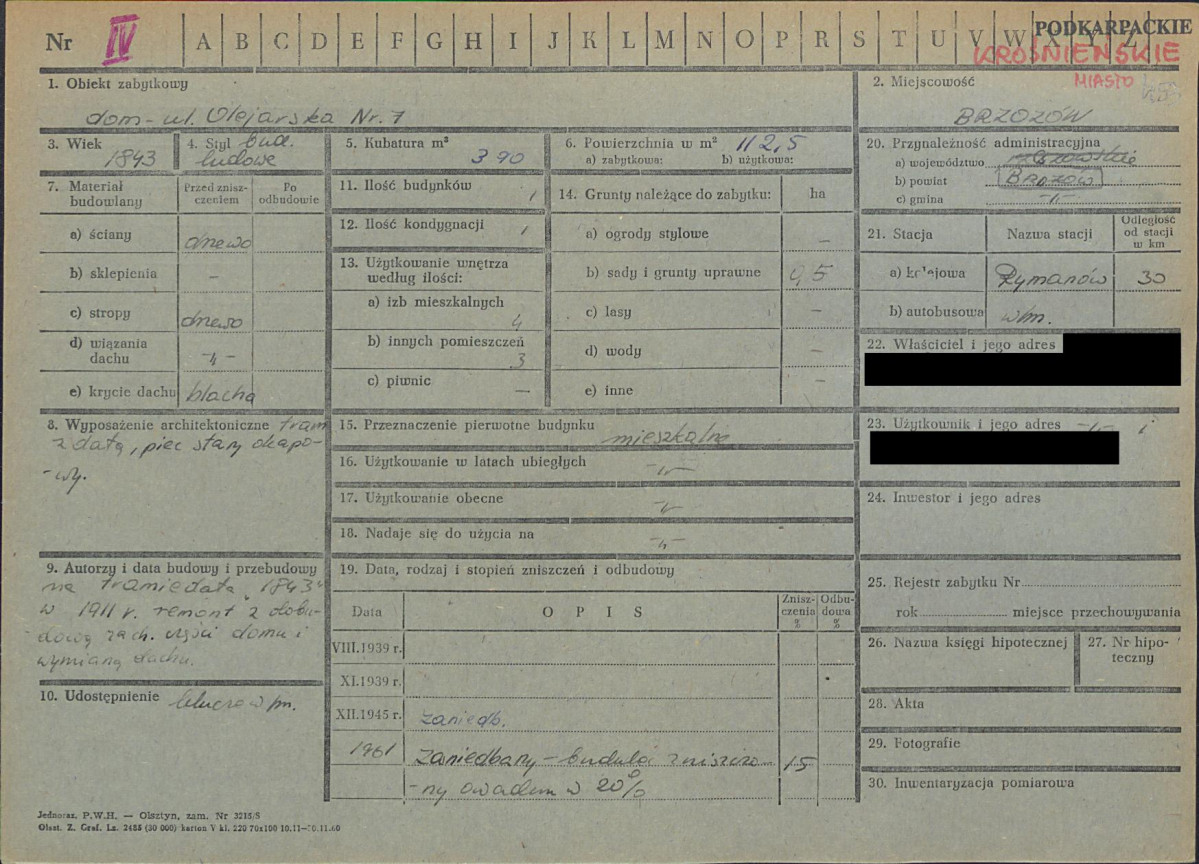 Nr IV A B C D E F G H I J K L M N O P R S T U V W X Y Z PODKARPACKIE
KROŚNIEŃSKIE
MIASTO
1. Obiekt zabytkowy
dom - ul. Olejarska Nr. 7
2. Miejscowość
BRZOZÓW
3. Wiek
1843
4. Styl bud.
ludowe
5. Kubatura m³
390
6. Powierzchnia w m² 112,5
a) zabytkowa: b) użytkowa:
20. Przynależność administracyjna
a) województwo rzeszowskie
b) powiat BRZOZÓW
c) gmina -"-
7. Materiał
budowlany
Przed znisz-
czeniem
Po
odbudowie
a) ściany drewo
b) sklepienia -
c) stropy drewo
d) wiązania
dachu -"-
e) krycie dachu blacha
11. Ilość budynków 1
12. Ilość kondygnacji 1
13. Użytkowanie wnętrza
według ilości:
a) izb mieszkalnych
4
b) innych pomieszczeń
3
c) piwnic -
14. Grunty należące do zabytku: ha
a) ogrody stylowe -
b) sady i grunty uprawne 0,5
c) lasy -
d) wody -
e) inne -
21. Stacja Nazwa stacji Odległość
od stacji
w km
a) kolejowa Rymanów 30
b) autobusowa w/m.
22. Właściciel i jego adres
8. Wyposażenie architektoniczne tram
z datą, piec stary okapo-
-wy.
15. Przeznaczenie pierwotne budynku
mieszkalne
16. Użytkowanie w latach ubiegłych
-"-
17. Użytkowanie obecne
-"-
18. Nadaje się do użycia na
-"-
23. Użytkownik i jego adres -"- i
24. Inwestor i jego adres
9. Autorzy i data budowy i przebudowy
na tramie data „1843"
w 1911 r. remont z dobu-
-dową zach. części domu i
wymianą dachu.
10. Udostępnienie klucze w/m.
19. Data, rodzaj i stopień zniszczeń i odbudowy
Data OPIS Znisz-
czenia
%
Odbu-
dowa
%
VIII.1939 r.
XI.1939 r.
XII.1945 r. zaniedb.
1961 zaniedbany - budulec zniszczo- 15
-ny owadem w 20%
25. Rejestr zabytku Nr
rok miejsce przechowywania
26. Nazwa księgi hipotecznej
27. Nr hipo-
teczny
28. Akta
29. Fotografie
30. Inwentaryzacja pomiarowa
Jednoraz. P.W.H. — Olsztyn, zam. Nr 3215/S
Olszt. Z. Graf. Lz. 2485 (30 000) karton V kl. 220 70x100 10.11—30.11.60